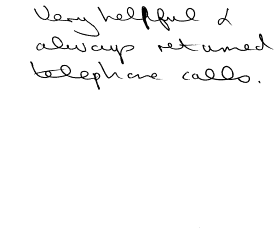 Very helpful &
always returned
telephone calls.